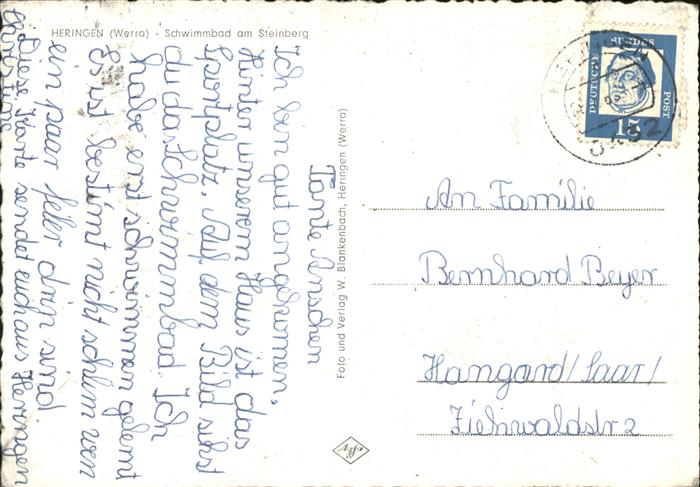 HERINGEN (Werra) - Schwimmbad am Steinberg
Tante Änschen
Ich bin gut angekommen,
Hinter unserem Haus ist das
Sportplatz. Auf dem Bild sihst
du das Schwimmbad. Ich
habe erst schwimmen gelernt
Es ist bestimt nicht schlim wen
ein paar feler drin sind
Diese Karte sendet euch aus Heringen
Christiane
Foto und Verlag W. Blankenbach, Heringen (Werra)
DEUTSCHE BUNDES POST
15
An Familie
Bernhard Beyer
Hangard/Saar/
Ziehwaldstr 2